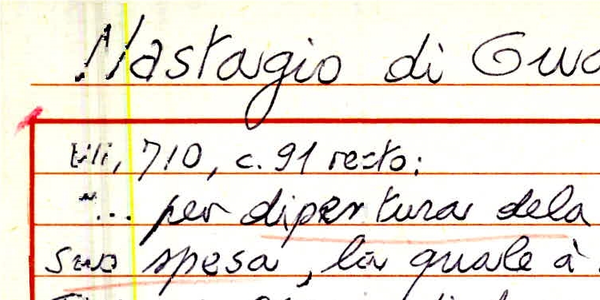 Nastagio di Gua
Vili, 710, c. 91 recto:
"... per dipentura dela
sua spesa, la quale à